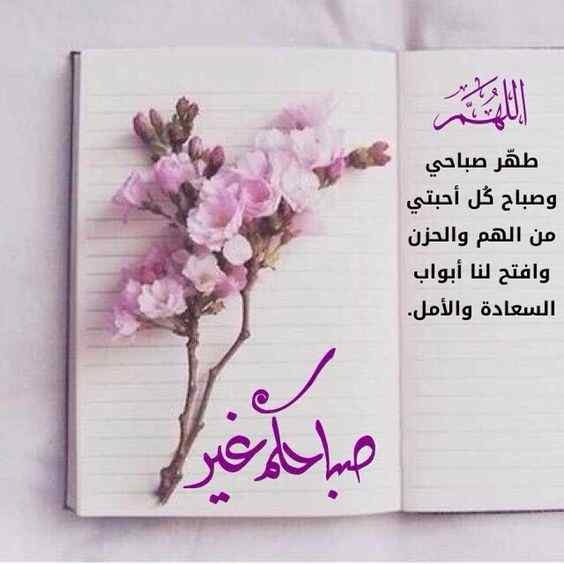 اللهُمَّ
طهّر صباحي
وصباح كُل أحبتي
من الهم والحزن
وافتح لنا أبواب
السعادة والأمل.
صباحكم غير